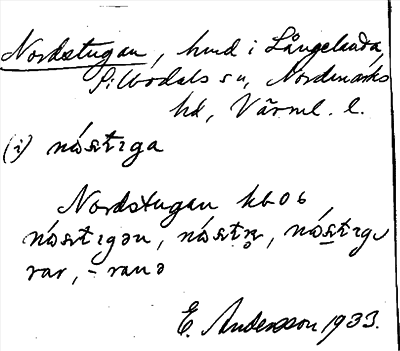 Nordstugan, hmd i Långelanda,
Silbodals sn, Nordmarks
hd, Värml. l.
(i) nɷ́sṭıga
Nordstugan hb06
nɷ́sṭıgən, nɷ́sṭn̥, nɷ́sṭıgu
rar, -ranə
E. Andersson 1933.